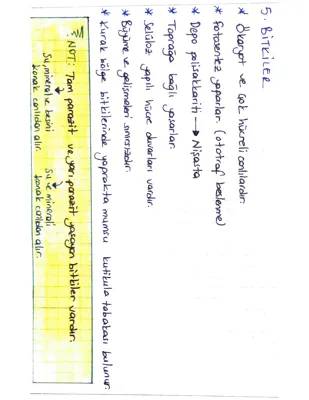 5. BİTKİLER
* Ökaryot ve çok hücreli canlılardır.
* Fotosentez yaparlar. (ototrof beslenme)
* Depo polisakkariti → Nişasta
* Toprağa bağlı yaşarlar.
* Selüloz yapılı hücre duvarları vardır.
* Büyüme ve gelişmeleri sınırsızdır.
* Kurak bölge bitkilerinde yaprakta mumsu kutikula tabakası bulunur.
NOT: Tam parazit ve yarı parazit yaşayan bitkiler vardır.
Su, mineral ve besini Su ve minerali
konak canlıdan alır. konak canlıdan alır.